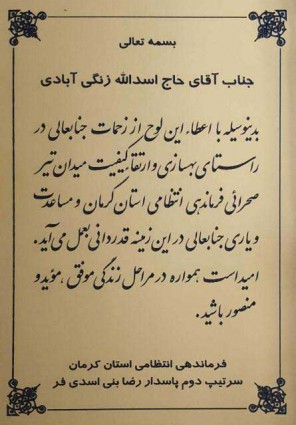 بسمه تعالی
جناب آقای حاج اسدالله زنگی آبادی
بدینوسیله با اعطاء این لوح از زحمات جنابعالی در
راستای بهسازی و ارتقاء کیفیت میدان تیر
صحرائی فرماندهی انتظامی استان کرمان و مساعدت
و یاری جنابعالی در این زمینه قدردانی بعمل می آید.
امید است همواره در مراحل زندگی موفق ، مؤید و
منصور باشید.
فرماندهی انتظامی استان کرمان
سرتیپ دوم پاسدار رضا بنی اسدی فر